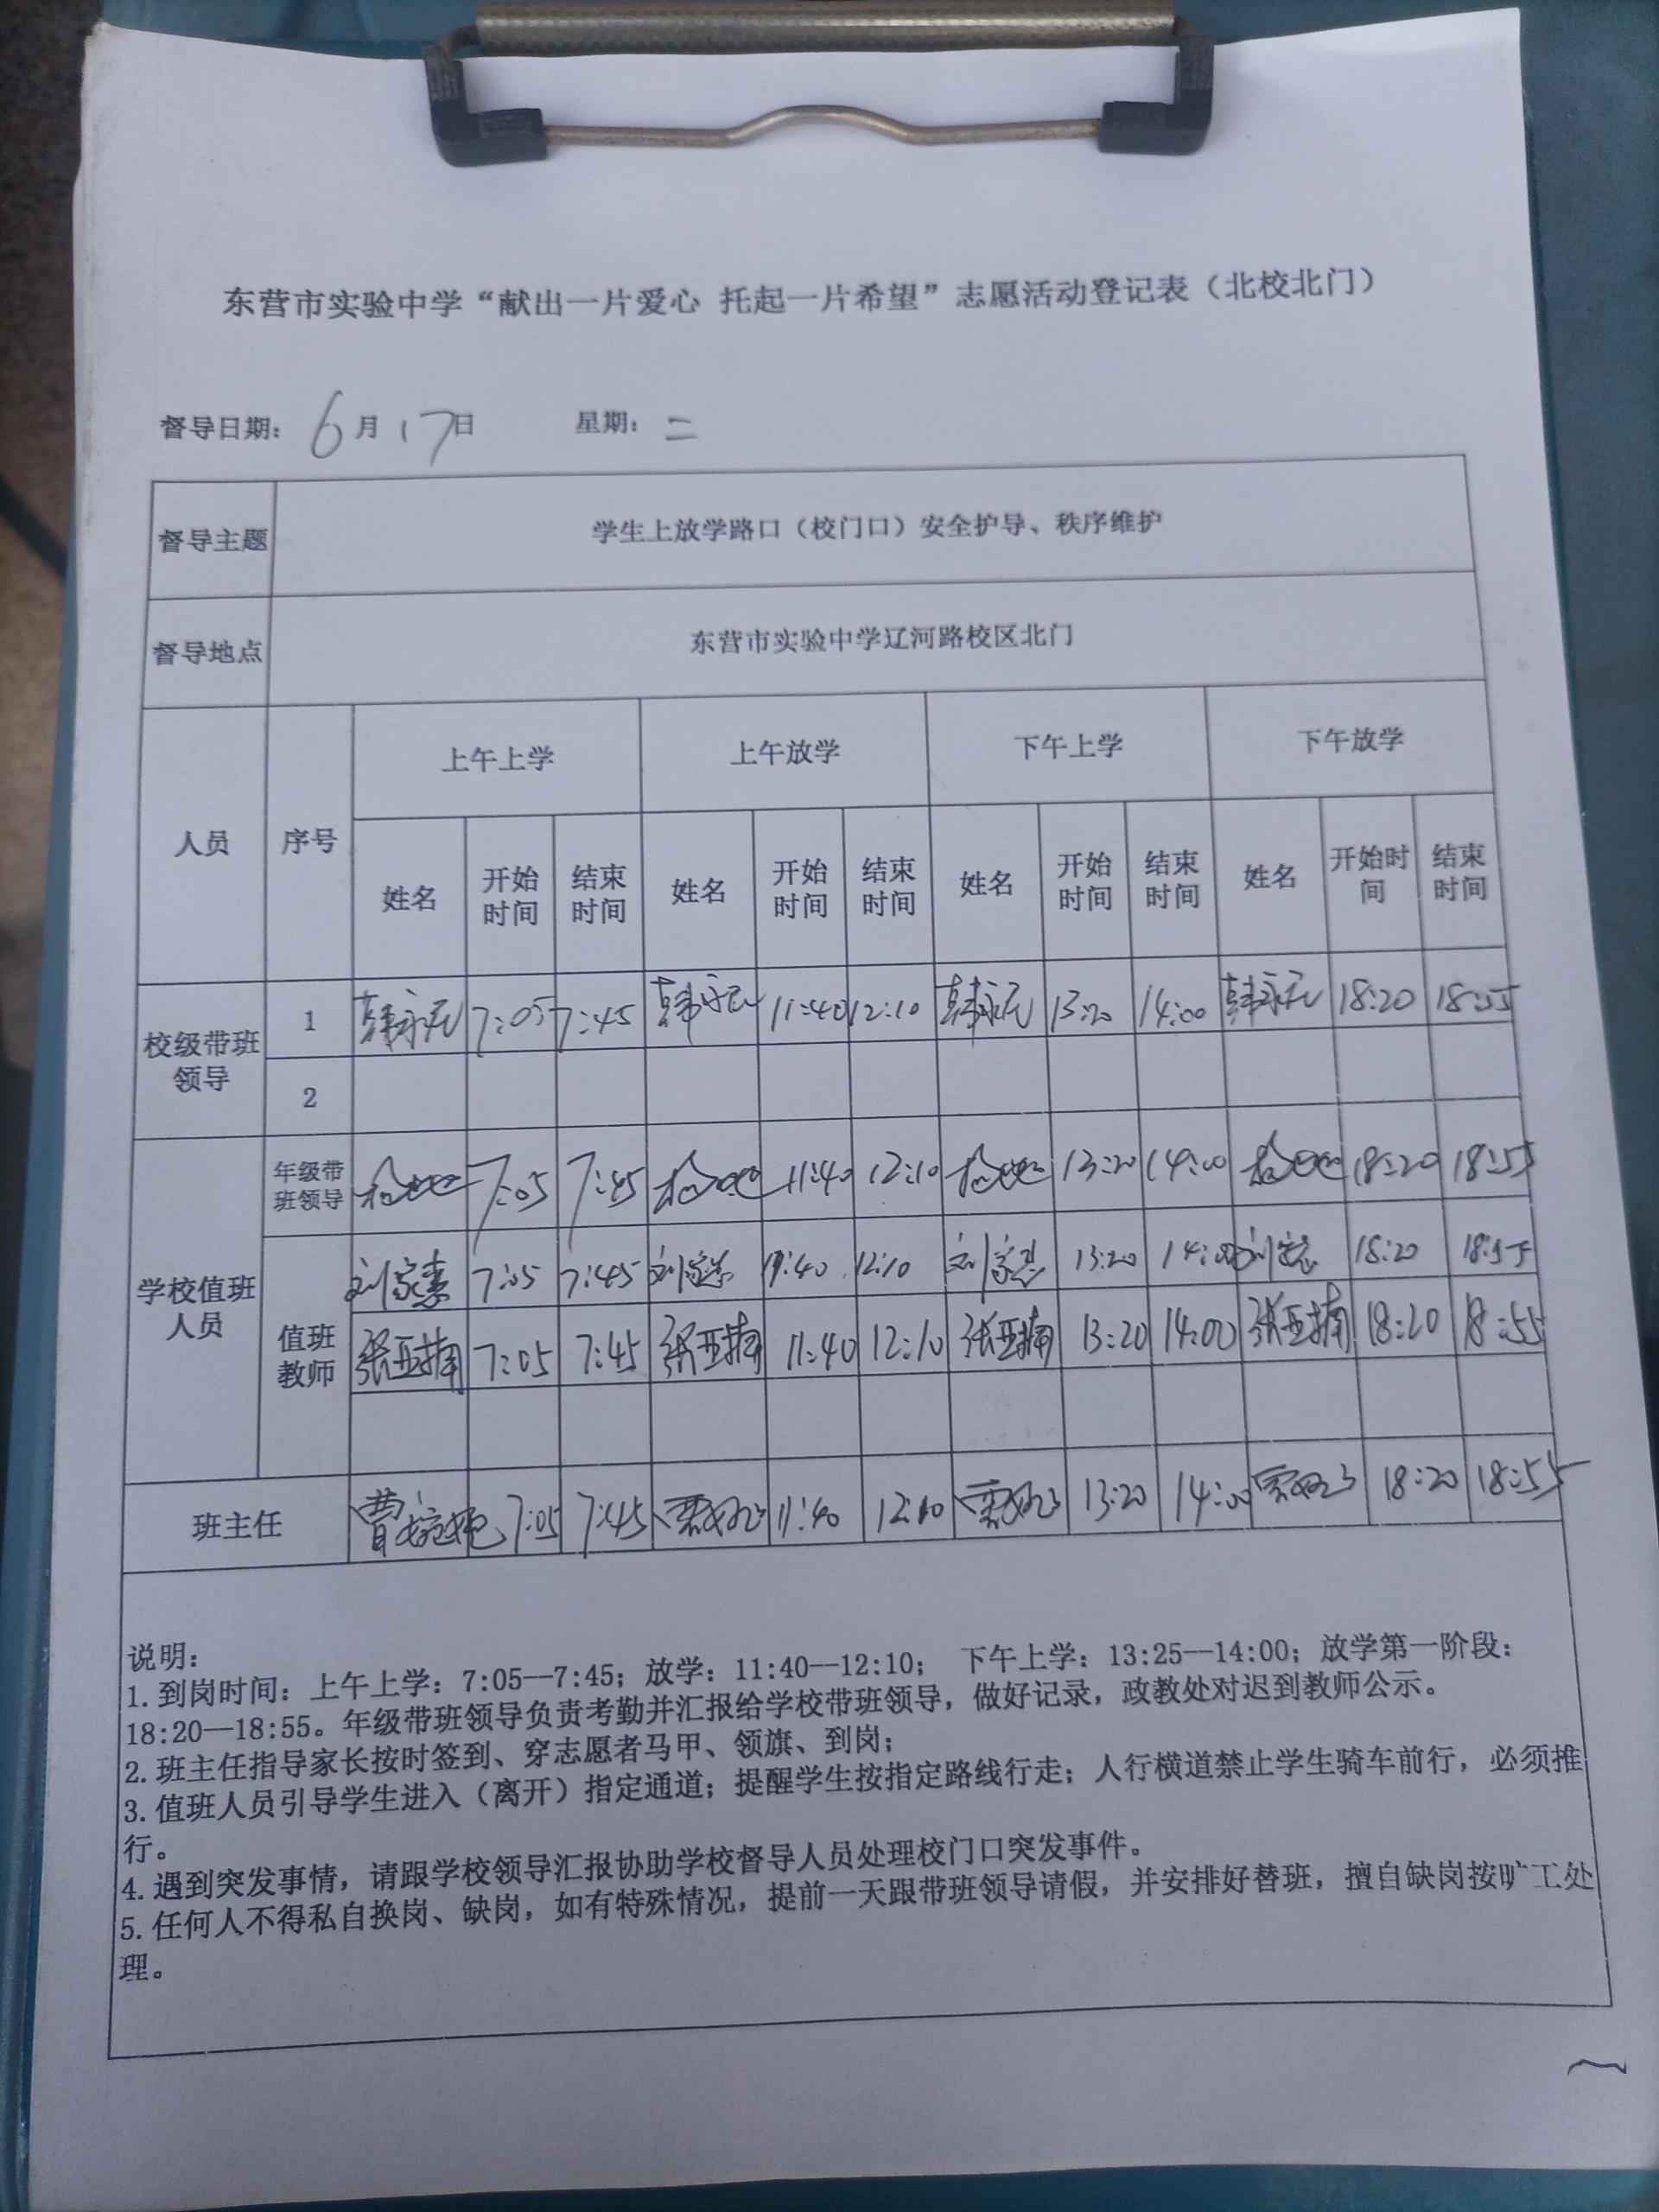 东营市实验中学“献出一片爱心 托起一片希望”志愿活动登记表（北校北门）
督导日期： 6月17日 星期：二
督导主题 学生上放学路口（校门口）安全护导、秩序维护
督导地点 东营市实验中学辽河路校区北门
人员 序号 上午上学 上午放学 下午上学 下午放学
姓名 开始时间 结束时间 姓名 开始时间 结束时间 姓名 开始时间 结束时间 姓名 开始时间 结束时间
校级带班领导 1 7:05 7:45 11:40 12:10 13:20 14:00 18:20 18:55
2
学校值班人员 年级带班领导 7:05 7:45 11:40 12:10 13:20 14:00 18:20 18:55
值班教师 7:05 7:45 11:40 12:10 13:20 14:00 18:20 18:55
张亚楠 7:05 7:45 张亚楠 11:40 12:10 张亚楠 13:20 14:00 张亚楠 18:20 18:55
班主任 7:05 7:45 11:40 12:10 13:20 14:00 18:20 18:55
说明：
1.到岗时间：上午上学：7:05—7:45；放学：11:40—12:10； 下午上学：13:25—14:00；放学第一阶段：
18:20—18:55。年级带班领导负责考勤并汇报给学校带班领导，做好记录，政教处对迟到教师公示。
2.班主任指导家长按时签到、穿志愿者马甲、领旗、到岗；
3.值班人员引导学生进入（离开）指定通道；提醒学生按指定路线行走；人行横道禁止学生骑车前行，必须推
行。
4.遇到突发事情，请跟学校领导汇报协助学校督导人员处理校门口突发事件。
5.任何人不得私自换岗、缺岗，如有特殊情况，提前一天跟带班领导请假，并安排好替班，擅自缺岗按旷工处
理。